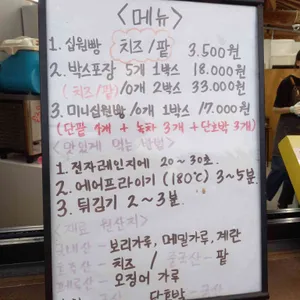 <메뉴>
1. 십원빵 치즈/팥 3.500원
2. 박스포장 5개 1박스 18.000원
(치즈/팥)/0개 2박스 33.000원
3. 미니십원빵/0개 1박스 17.000원
(단팥 4개 + 녹차 3개 + 단호박 3개)
<맛있게 먹는 방법>
1. 전자레인지에 20~30초.
2. 에어프라이기 (180℃) 3~5분.
3. 튀김기 2~3분.
<재료 원산지>
국내산 - 보리가루, 메밀가루, 계란
- 치즈 / 중국산 - 팥
- 오징어 가루
단호박